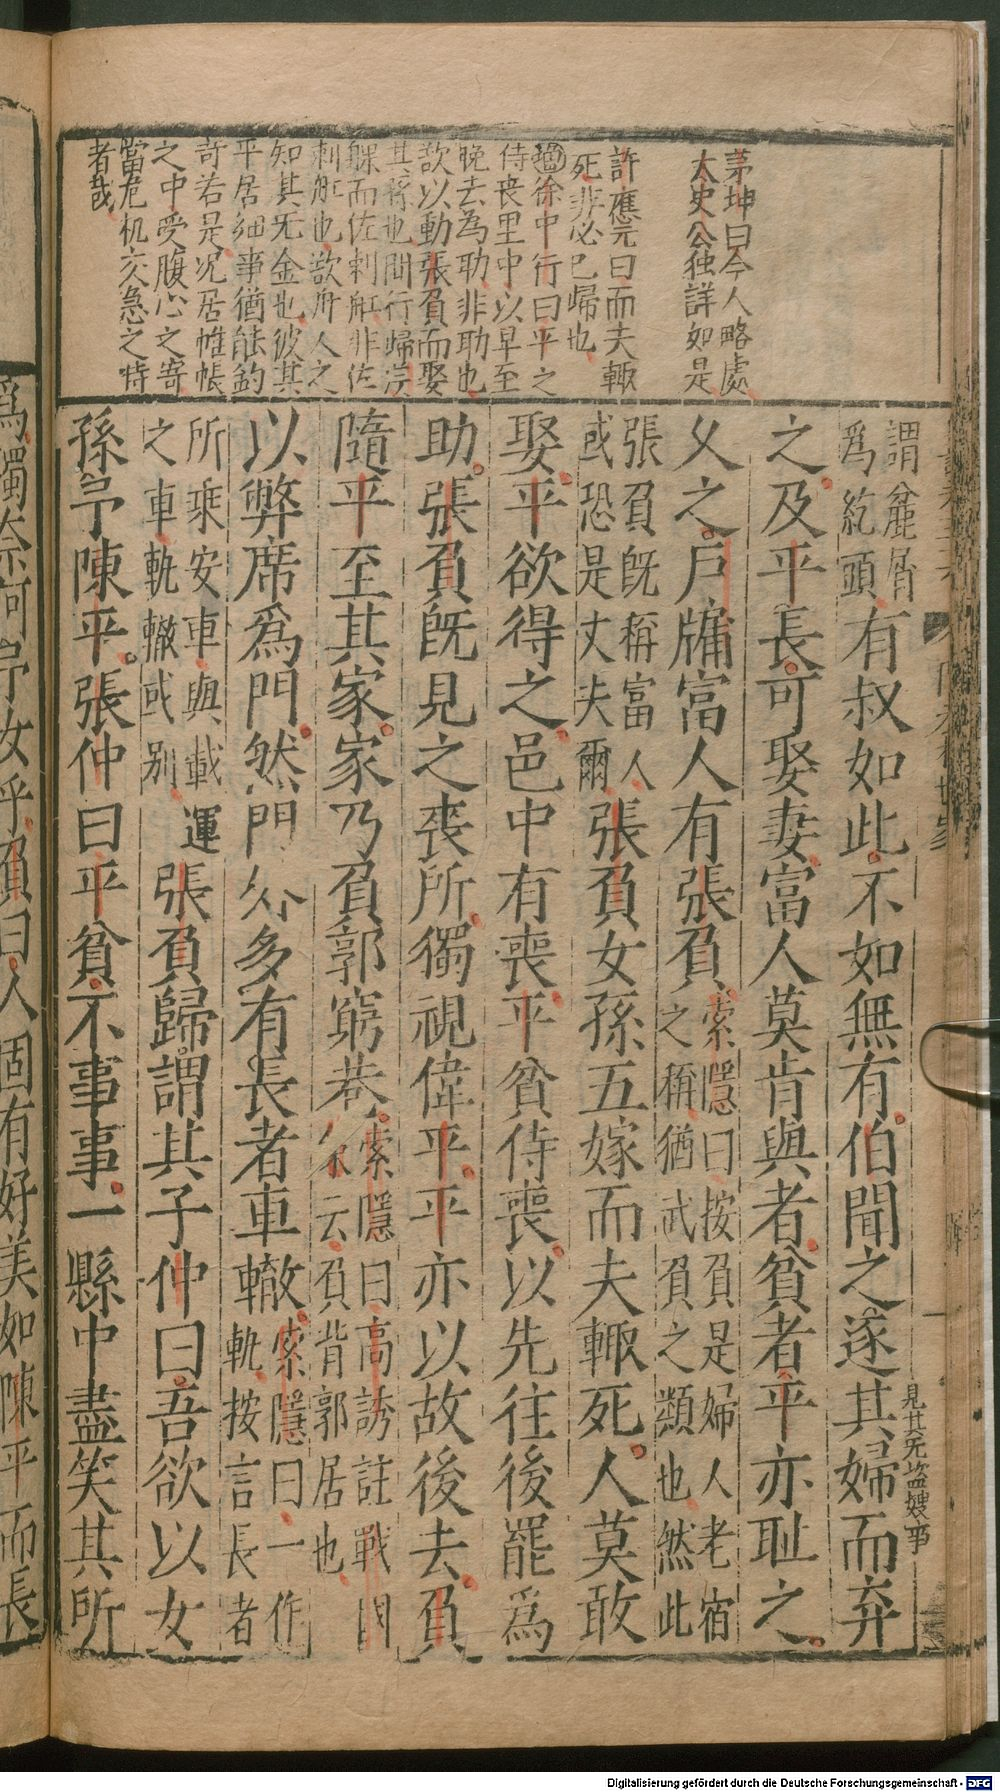 茅坤曰今人略處
太史公独詳如是
許應元曰而夫輙
死非必已歸也
徐中行曰平之
侍丧里中以早至
晚去為助非助也
歆以動張負而娶
其孫也間行歸漢
躶而佐刺船非佐
刺船也歆舟人之
知其无金也彼其
平居細事猶能釣
竒若是况居帷帳
之中受腹心之寄
當危机交急之時
者哉
謂麄屑
爲紇頭有叔如此不如無有伯聞之逐其婦而弃
見其无盗嫂事
之及平長可娶妻富人莫肯與者貧者平亦耻之
乆之户牖富人有張負索隱曰按負是婦人老宿
之稱猶武負之類也然此
張負旣稱富人
或恐是丈夫爾張負女孫五嫁而夫輙死人莫敢
娶平欲得之邑中有喪平貧侍喪以先往後罷爲
助張負旣見之喪所獨視偉平平亦以故後去負
隨平至其家家乃負郭窮巷索隱曰高誘註戰國
䇿云負背郭居也
以弊席爲門然門外多有長者車轍索隱曰一作
軌按言長者
所乘安車與載運
之車軌轍或别張負歸謂其子仲曰吾欲以女
孫予陳平張仲曰平貧不事事一縣中盡笑其所
爲獨柰何予女乎負曰人固有好美如陳平而長
Digitalisierung gefördert durch die Deutsche Forschungsgemeinschaft - DFG